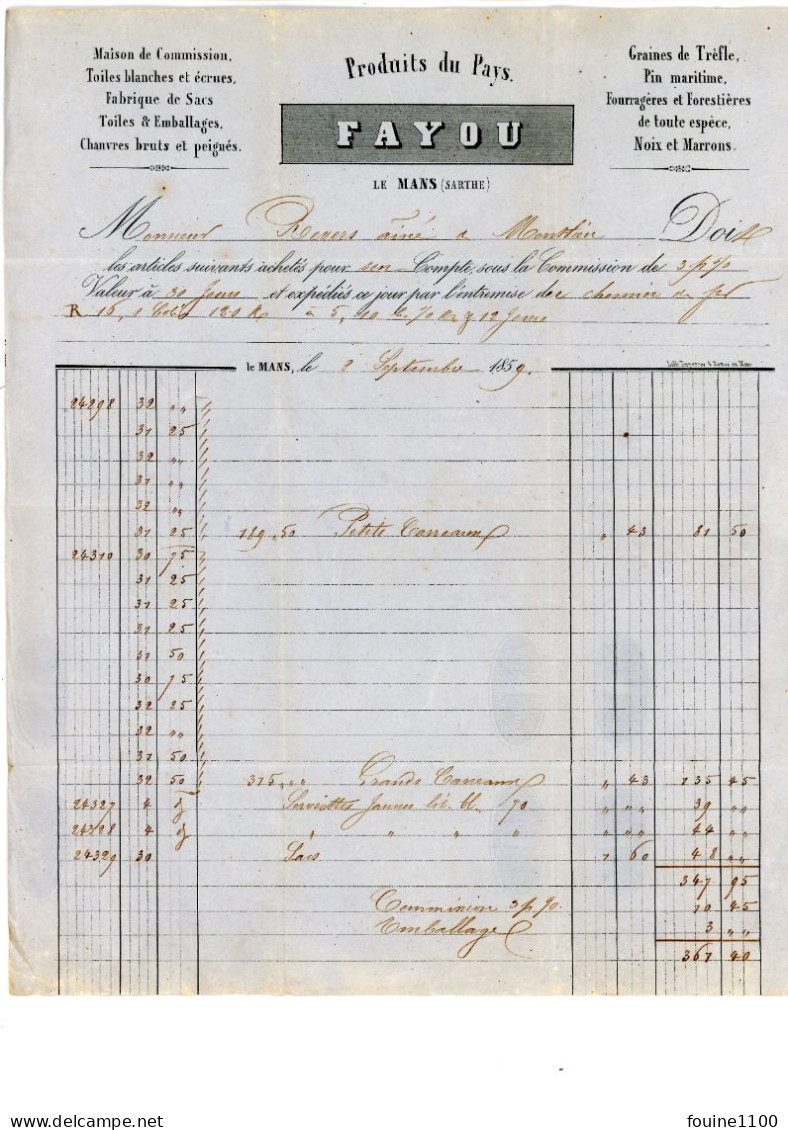 Maison de Commission,
Toiles blanches et écrues,
Fabrique de Sacs
Toiles & Emballages,
Chanvres bruts et peignés.
Produits du Pays.
FAYOU
LE MANS (SARTHE)
Graines de Trèfle,
Pin maritime,
Fourragères et Forestières
de toute espèce,
Noix et Marrons.
Monsieur Revers ainé a Doit
les articles suivants achetés pour son Compte, sous la Commission de 3 p %
Valeur à 30 Jours et expédiés ce jour par l'entremise de chemin de fer
R 15, 1 120 Ko à 5, 10 70 12 Jours
le MANS, le 2 Septembre 1859.
24298 32 " "
31 25
32 " "
31 "
32 " "
31 25 189 " 50 Petits Carreaux " 43 81 50
24310 30 75
31 25
31 25
31 25
31 50
30 75
32 25
32 " "
31 50
32 50 315 " " Grands Carreaux " 43 135 45
24327 4 d Serviettes Jaunes lit. bl. 70 " " " 39 " "
24328 4 d " " " " " " " 44 " "
24329 30 Sacs 1 60 48 " "
347 95
Commission 3 p % 10 45
Emballage 3 " "
361 40
Delcampe.net
fouine1100